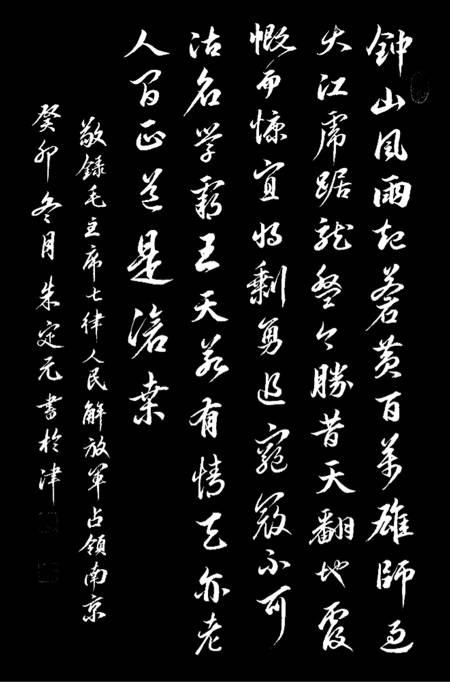 钟山風雨起蒼黄百万雄師过
大江虎踞龙盤今勝昔天翻地覆
慨而慷宜将剩勇追窮寇不可
沽名学霸王天若有情天亦老
人间正道是滄桑
敬録毛主席七律人民解放軍占領南京
癸卯冬月朱定元書於津